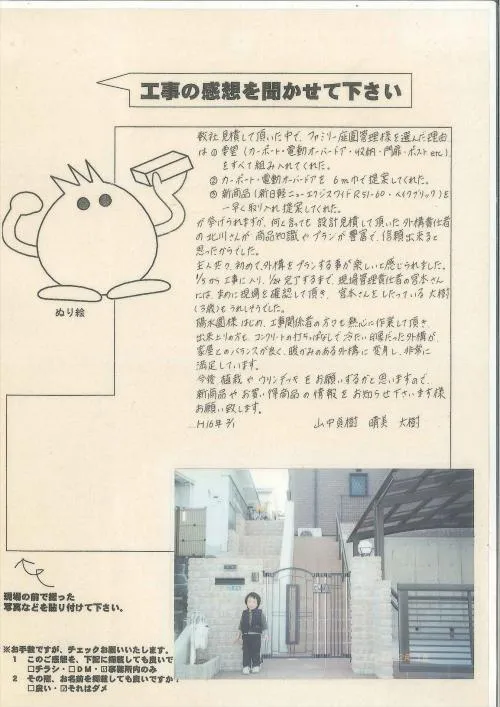 工事の感想を聞かせて下さい
数社見積して頂いた中で、ファミリー庭園管理様を選んだ理由
は①要望(カーポート・電動オーバードア・収納・門扉・ポストetc)
をすべて組み入れてくれた。
②カーポート・電動オーバードアを6m巾で提案してくれた。
③新商品(新日軽ニューエクシスワイドRS1-60・ベイクブリック)を
一早く取り入れ提案してくれた。
が挙げられますが、何と言っても設計見積して頂いた外構責任者
の北川さんが商品知識やプランが豊富で、信頼出来ると
思ったからでした。
初めて、外構をプランする事が楽しいと感じられました。
1/5から工事に入り、1/24完了するまで、現場管理責任者の宮本さん
には、まめに現場を確認して頂き、宮本さんをしたっている大樹
(3歳)もうれしそうでした。
陽水園様はじめ、工事関係者の方々も熱心に作業して頂き
出来上りの方も、コンクリートの打ちっぱなしで冷たい印象だった外構が、
家屋とのバランスが良く、暖かみのある外構に変身し、非常に
満足しています。
今後植栽やウッドデッキをお願いするかと思いますので、
新商品やお買い得商品の情報をお知らせ下さいます様
お願い致します。
H16年2/1 山中 晴美 大樹
ぬり絵
現場の前で撮った
写真などを貼り付けて下さい。
※お手数ですが、チェックお願いいたします。
1 このご感想を、下記に掲載しても良いで
□チラシ・□DM・☑事務所内のみ
2 その際、お名前を掲載しても良いですか?
□良い・☑それはダメ